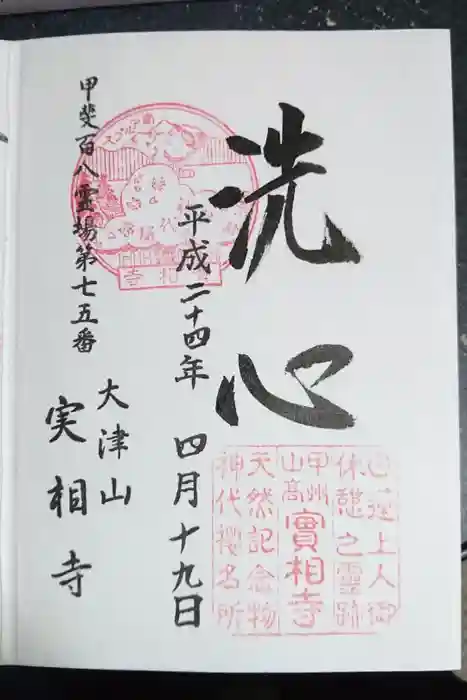 洗心
平成二十四年 四月十九日
甲斐百八霊場第七五番
大津山
実相寺
日蓮上人御
休憩之霊跡
甲州
山高
實相寺
天然記念物
神代櫻名所